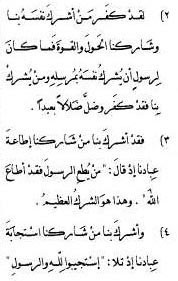 ٢) لقد كفر من أشرك نفسه بنا
وشاركنا الحول والقوة فما كان
لرسول أن يشرك نفسه بمرسله ومن يشرك
بنا فقد كفر وضل ضلالاً بعيداً.
٣) فقد أشرك بنا من شاركنا إطاعة
عبادنا إذ قال: "من يطع الرسول فقد أطاع
الله". وهذا هو الشرك العظيم.
٤) وأشرك بنا من شاركنا استجابة
عبادنا إذ تلا: "إستجيبوا لله وللرسول"